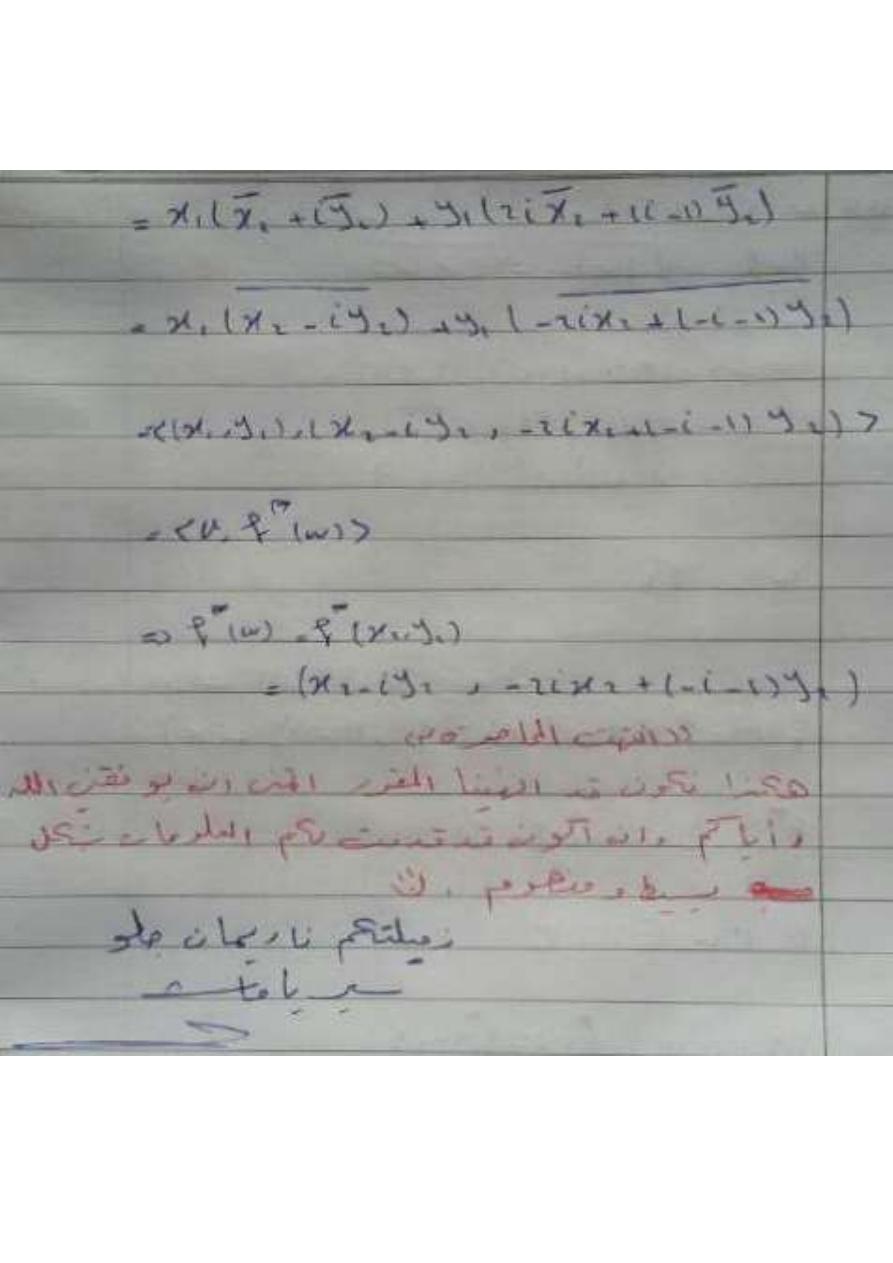 = x₁(x̄₂ + iȳ₂) + y₁(2i x̄₂ + (i-1) ȳ₂)
= x₁(\overline{x₂ - iy₂}) + y₁(\overline{-2ix₂ + (-i-1)y₂})
= <(x₁, y₁), (x₂ - iy₂, -2ix₂ + (-i-1) y₂)>
= <v, φ*(w)>
⇒ φ*(w) = φ*(x₂, y₂)
= (x₂ - iy₂ , -2ix₂ + (-i-1) y₂)
((انتهت المحاضرة))
هكذا نكون قد انهينا المقرر اتمنى ان يوفقني الله
وأياكم وان أكون قد قدمت لكم المعلومات بشكل
بسيط ومفهوم .
زميلتكم ناريمان